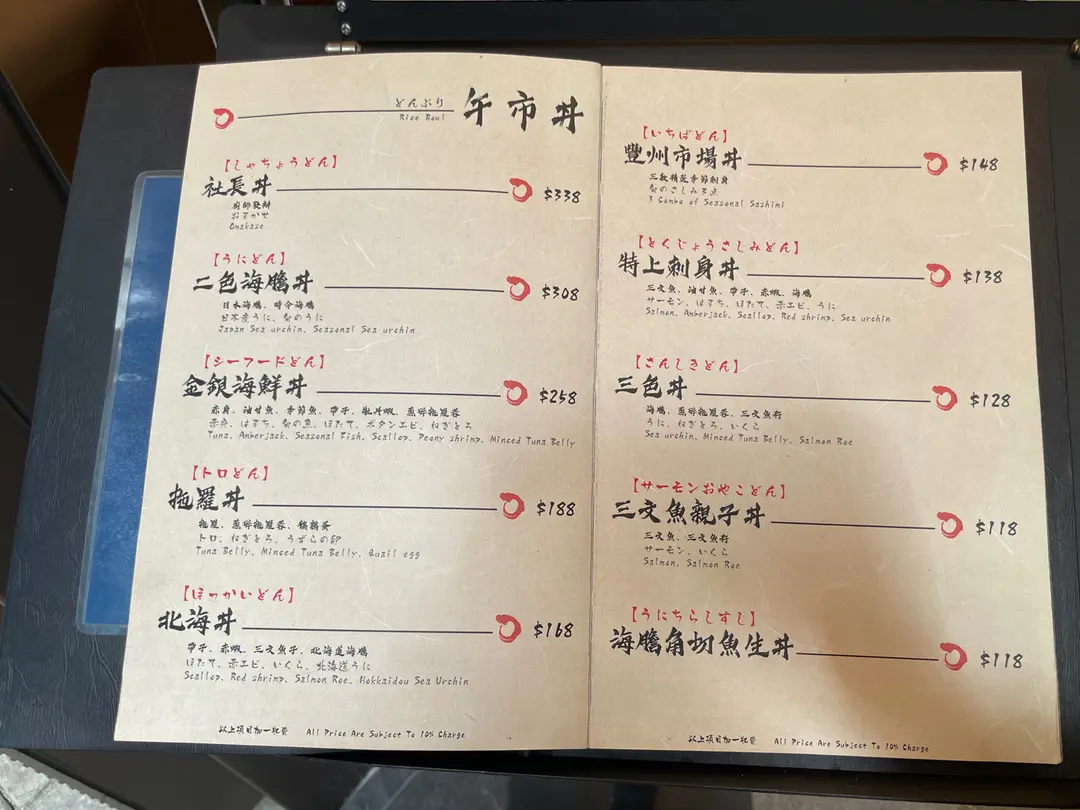 どんぶり
Rice Bowl
午市丼
【しゃちょうどん】
社長丼 $338
廚師發辦
おまかせ
Omakase
【うにどん】
二色海膽丼 $308
日本海膽、時令海膽
日本産うに、旬のうに
Japan Sea urchin、Seasonal Sea urchin
【シーフードどん】
金銀海鮮丼 $258
赤身、油甘魚、季節魚、帶子、牡丹蝦、蔥碎拖羅蓉
赤身、はまち、旬の魚、ほたて、ボタンエビ、ねぎとろ
Tuna、Amberjack、Seasonal Fish、Scallop、Peony shrimp、Minced Tuna Belly
【トロどん】
拖羅丼 $188
拖羅、蔥碎拖羅蓉、鵪鶉蛋
トロ、ねぎとろ、うずらの卵
Tuna Belly、Minced Tuna Belly、Quail egg
【ほっかいどん】
北海丼 $168
帶子、赤蝦、三文魚子、北海道海膽
ほたて、赤エビ、いくら、北海道うに
Scallop、Red shrimp、Salmon Roe、Hokkaidou Sea Urchin
以上項目加一收費 All Price Are Subject To 10% Charge
【いちばどん】
豐州市場丼 $148
三款精選季節刺身
旬のさしみ3点
3 Combo of Seasonal Sashimi
【とくじょうさしみどん】
特上刺身丼 $138
三文魚、油甘魚、帶子、赤蝦、海膽
サーモン、はまち、ほたて、赤エビ、うに
Salmon、Amberjack、Scallop、Red shrimp、Sea urchin
【さんしきどん】
三色丼 $128
海膽、蔥碎拖羅蓉、三文魚籽
うに、ねぎとろ、いくら
Sea urchin、Minced Tuna Belly、Salmon Roe
【サーモンおやこどん】
三文魚親子丼 $118
三文魚、三文魚籽
サーモン、いくら
Salmon、Salmon Roe
【うにちらしすし】
海膽角切魚生丼 $118
以上項目加一收費 All Price Are Subject To 10% Charge